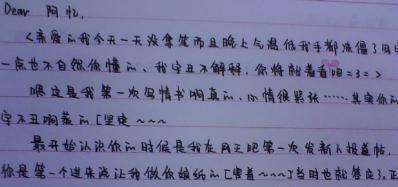 Dear 阿忆,
<亲爱的我今天一天没拿笔而且晚上气温低我手都冻僵了写字
一点也不自然你懂的、我字丑不解释、你将就着看吧=3=>
嗯这是我第一次写情书啊真的、心情很紧张……其实你的
字不丑啊羞的[坚定~~~
最开始认识你的时候是我在网王吧第一次发新人报道帖,
你是第一个进来说让我做你娘纸的[害羞~~~]当时也就答应了,正